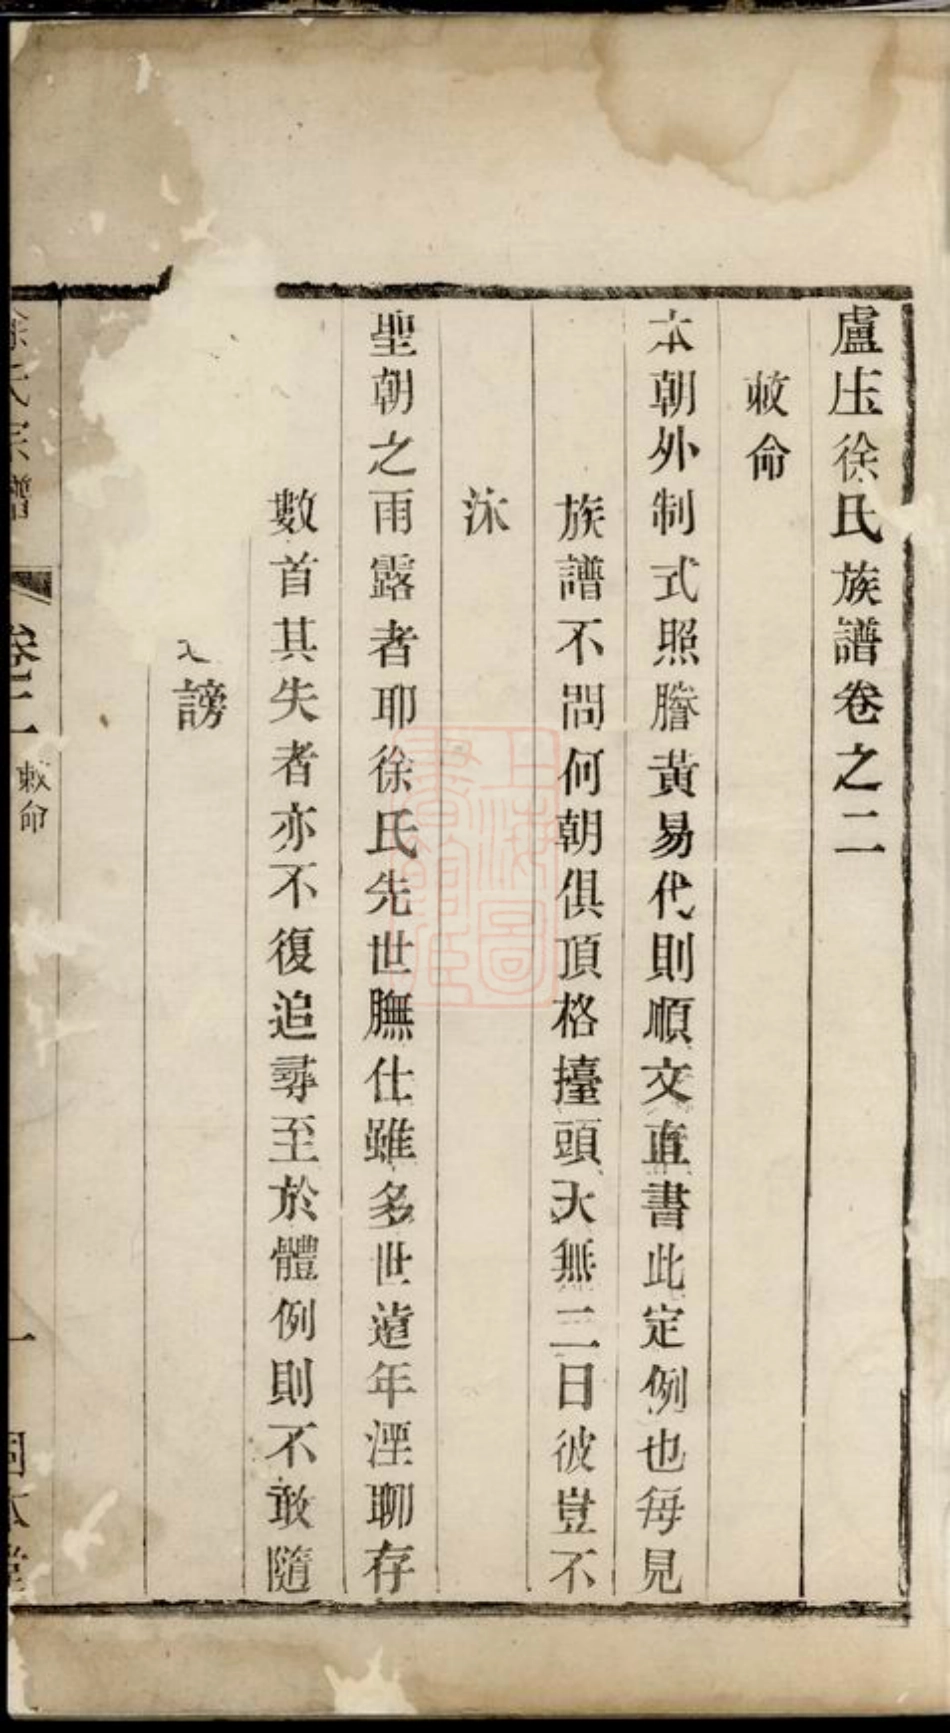 盧庄徐氏族譜卷之二
敕命
本朝外制式照謄黃易代則順文直書此定例也每見
族譜不問何朝俱頂格擡頭天無二日彼豈不
沐
聖朝之雨露者耶徐氏先世膴仕雖多世遠年湮聊存
數首其失者亦不復追尋至於體例則不敢隨
謗
徐氏宗譜
卷二
敕命
一
本堂
上海圖書館藏